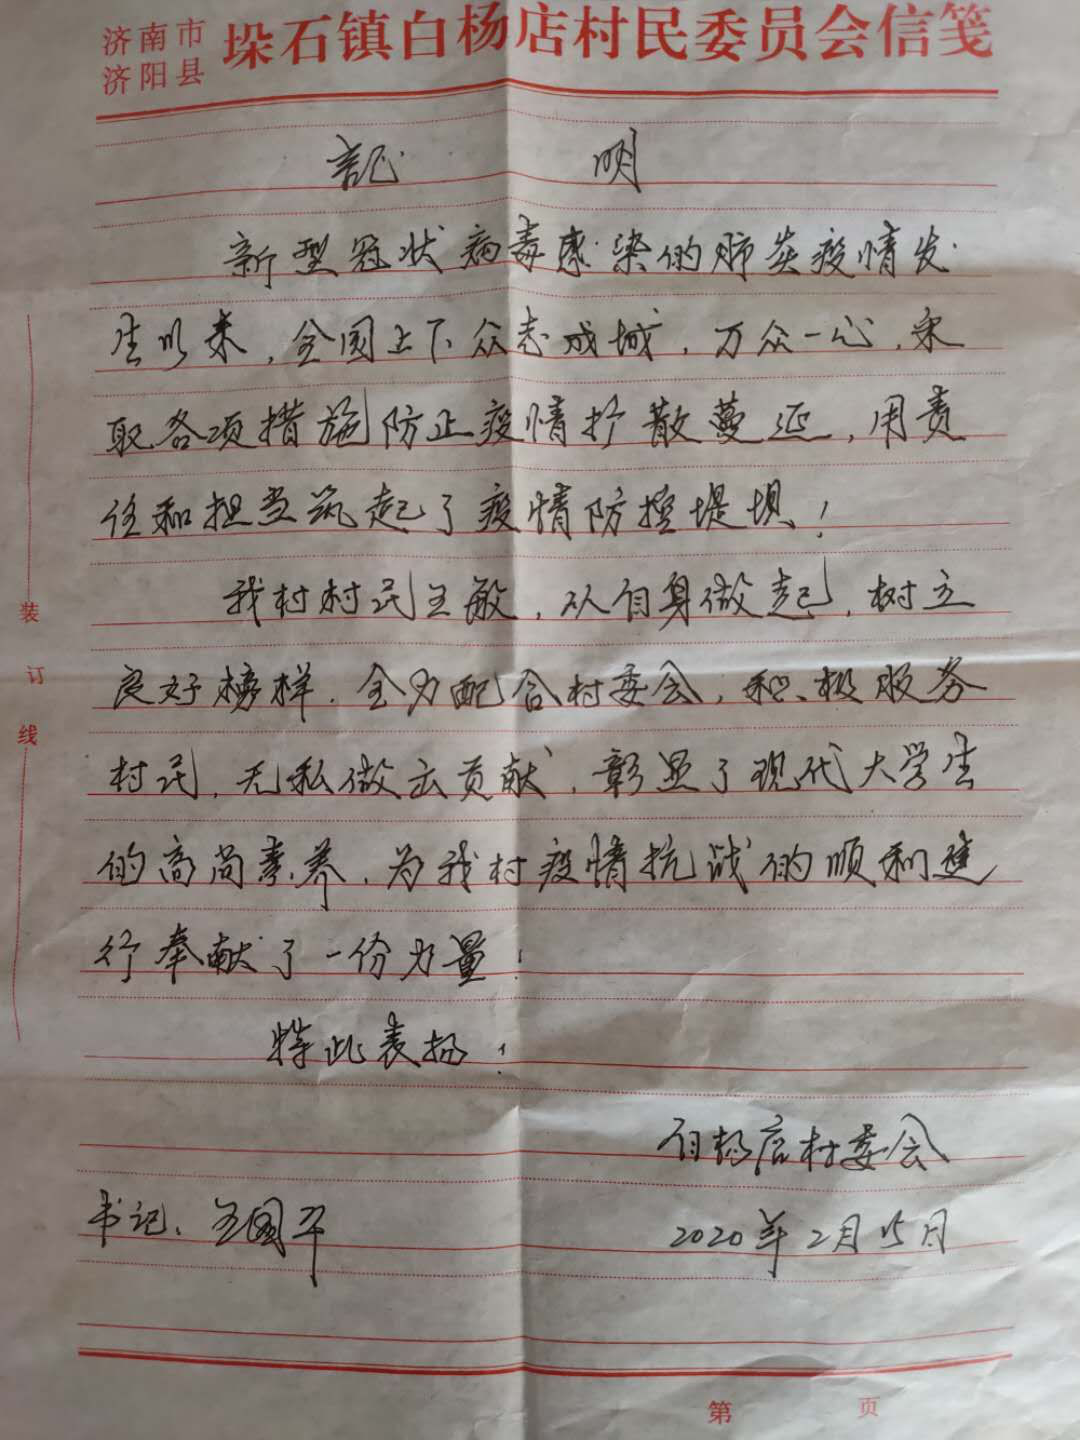 济南市
济阳县
垛石镇白杨店村民委员会信笺
证 明
新型冠状病毒感染的肺炎疫情发
生以来，全国上下众志成城，万众一心，采
取各项措施防止疫情扩散蔓延，用责
任和担当筑起了疫情防控堤坝！
我村村民王敏，从自身做起，树立
良好榜样，全力配合村委会，积极服务
村民，无私做出贡献，彰显了现代大学生
的高尚素养，为我村疫情抗战的顺利进
行奉献了一份力量！
特此表扬！
白杨店村委会
书记：王国平
2020年2月15日
装
订
线
第 页